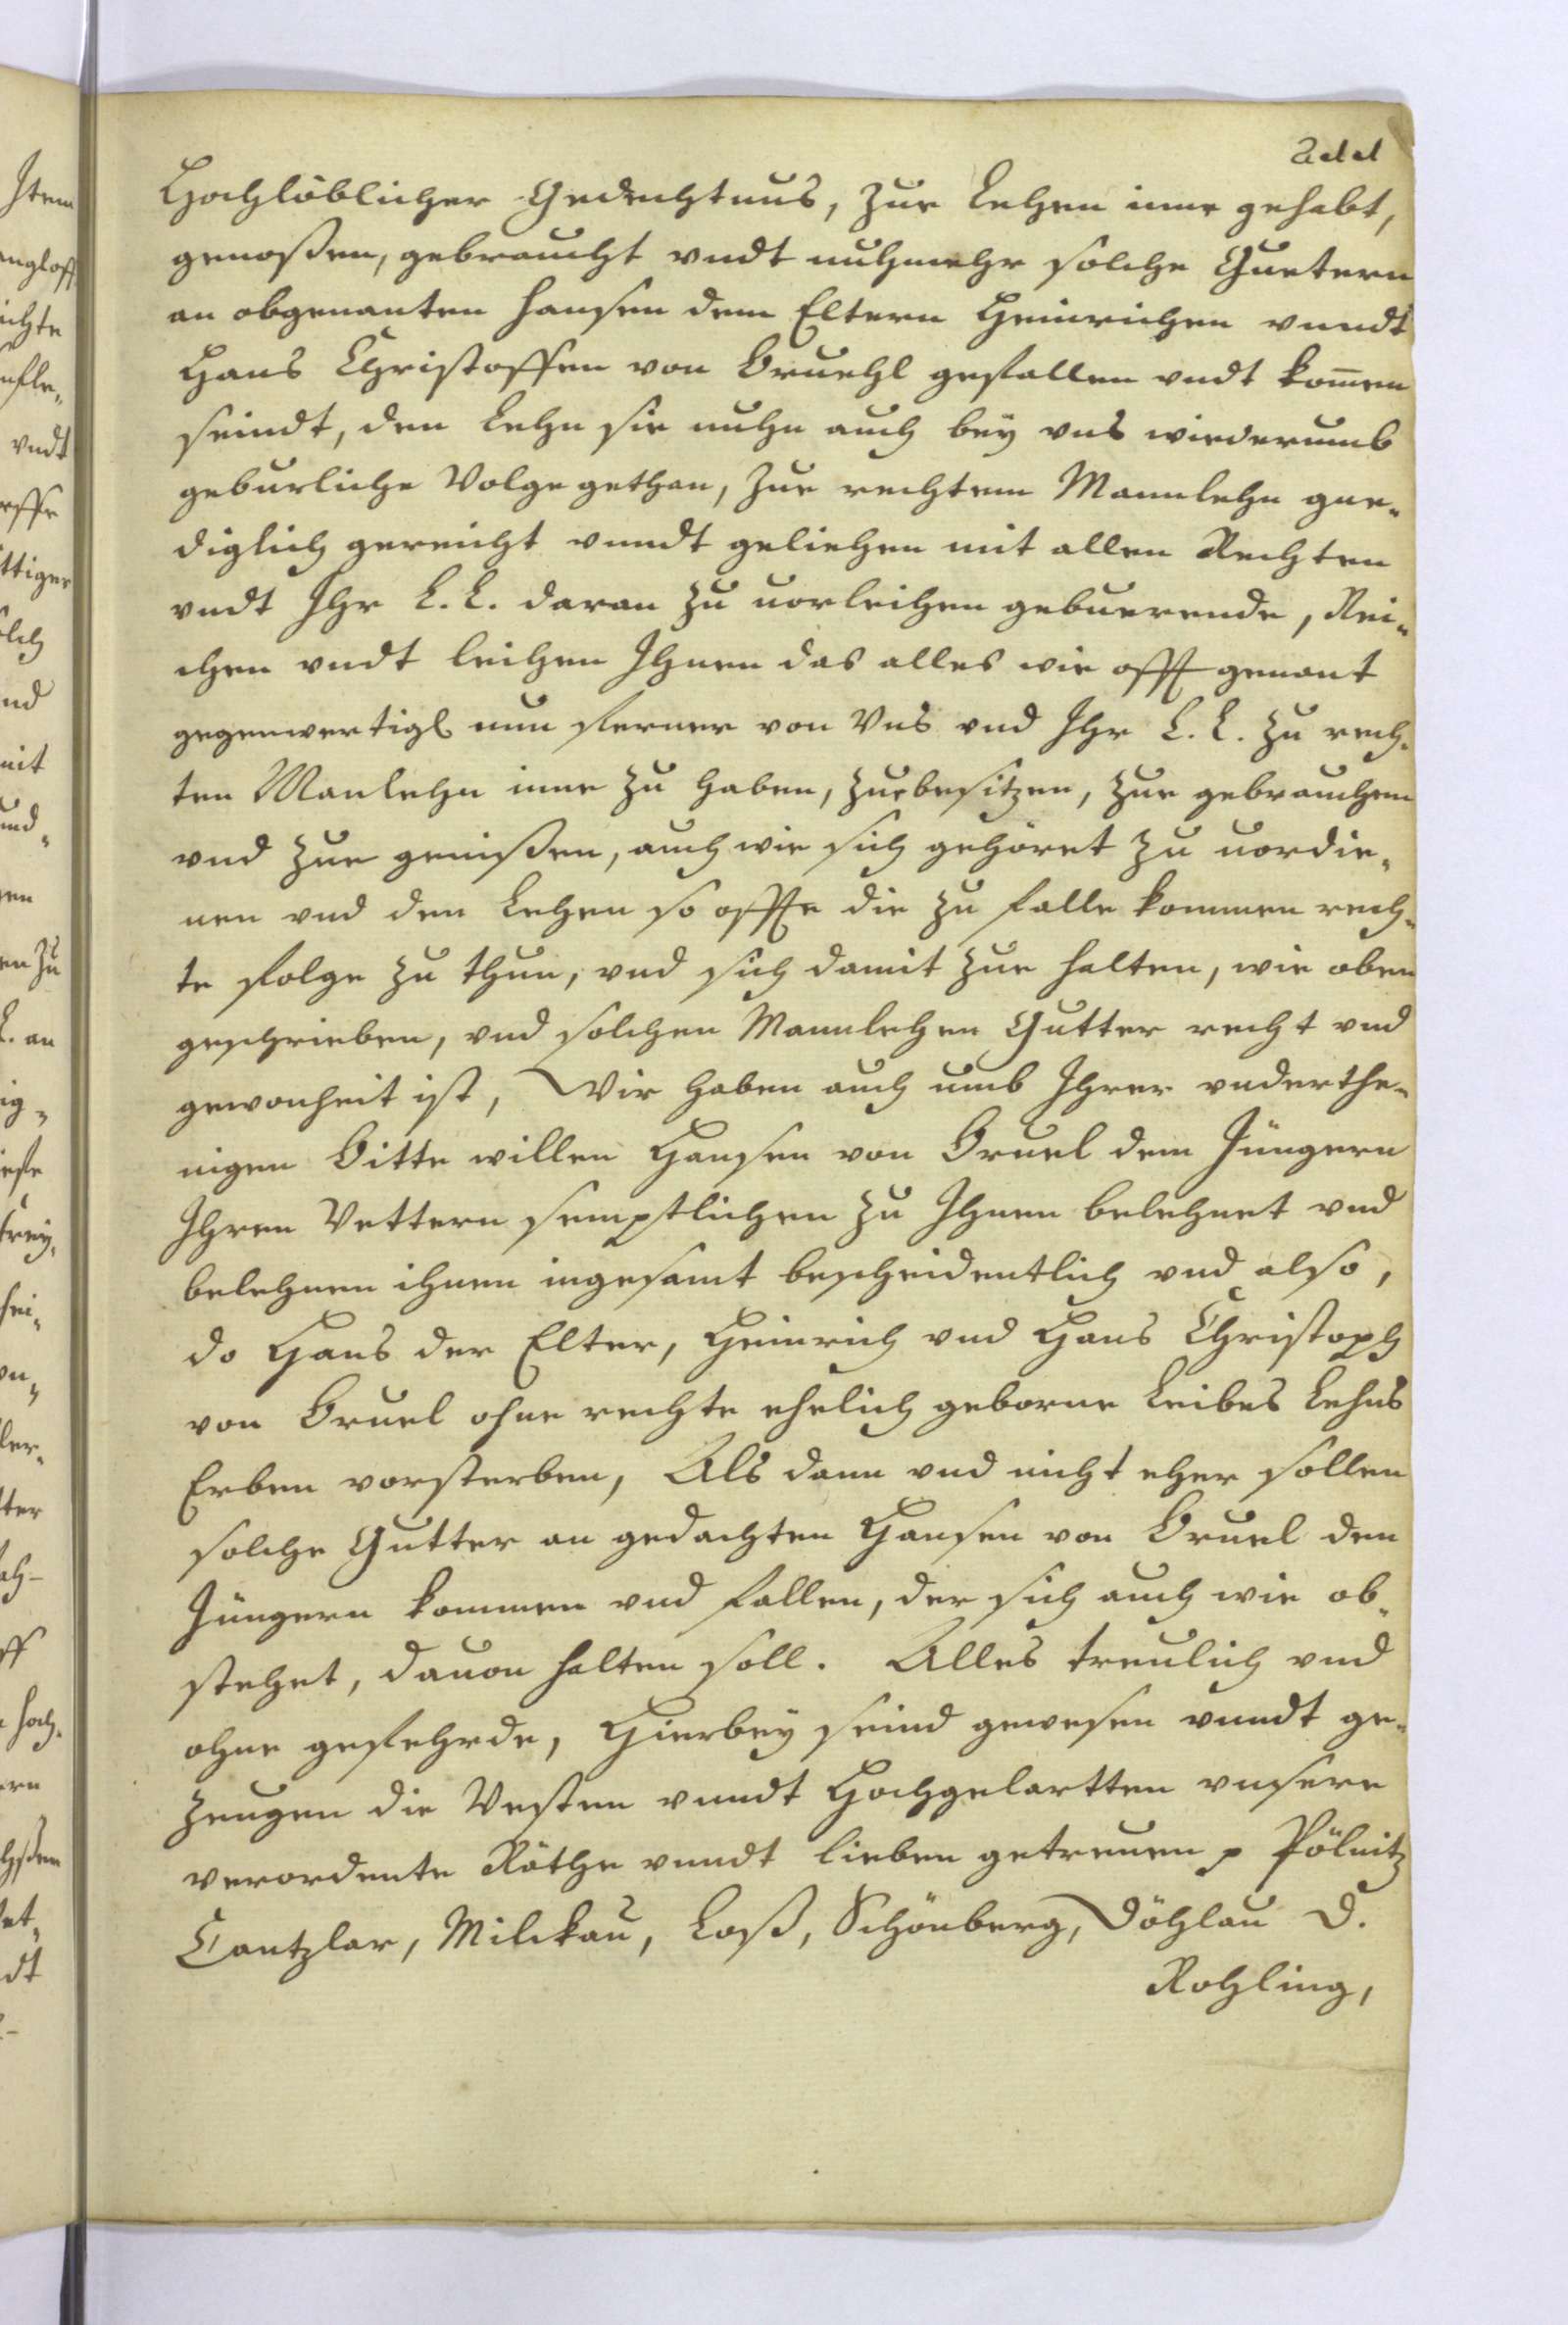 Hochlöblicher Gedechtnus, zue Lehen inne gehabt,
genoßen, gebraucht vndt nuhmehr solche Guetern
an obgenanten Hansen dem Eltern Heinrichen vnndt
Hans Christoffen von Bruehl gefallen vndt kom̄en
seindt, den Lehn sie nuhn auch bey vns wiederumb
geburliche Volge gethan, Zue rechtem Mannlehn gne-
diglich gereicht vnndt geliehen mit allen Rechten
vndt Ihr L. L. daran zu uorleihen gebuerende, Rei-
chen vndt leihen Ihnen das alles wie offt genant
gegenwertigl nun ferner von Vns vnd Ihr L. L. zu rech-
ten Manlehn inne zu haben, zue besitzen, zue gebrauchen
vnd zue genißen, auch wie sich gehöret zu uordie-
nen vnd den Lehen so offte die zu falle kommen rech-
te folge zu thun, vnd sich damit zue halten, wie oben
geschrieben, vnd solchen Mannlehen Gutter recht vnd
gewonheit ist, Wir haben auch umb Ihrer vnderthe-
nigen Bitte willen Hansen von Bruel dem Jüngern
Ihren Vettern semptlichen zu Ihnen belehnet vnd
belehnen ihnen ingesamt bescheidentlich vnd also,
do Hans der Elter, Heinrich vnd Hans Christoph
von Bruel ohne rechte ehelich geborne Leibes Lehns
Erben vorsterben, Als dann vnd nicht eher sollen
solche Gutter an gedachten Hansen von Bruel den
Jüngern kommen vnd fallen, der sich auch wie ob-
stehet, dauon halten soll. Alles treulich vnd
ohne gefehrde, Hierbey seind gewesen vnndt ge-
zeugen die Vesten vnndt Hochgelartten vnsere
verordente Räthe vnndt lieben getreuen p Pölnitz
Cantzlar, Milckau, Loß, Schönberg, Döhlau D.
Rohling,